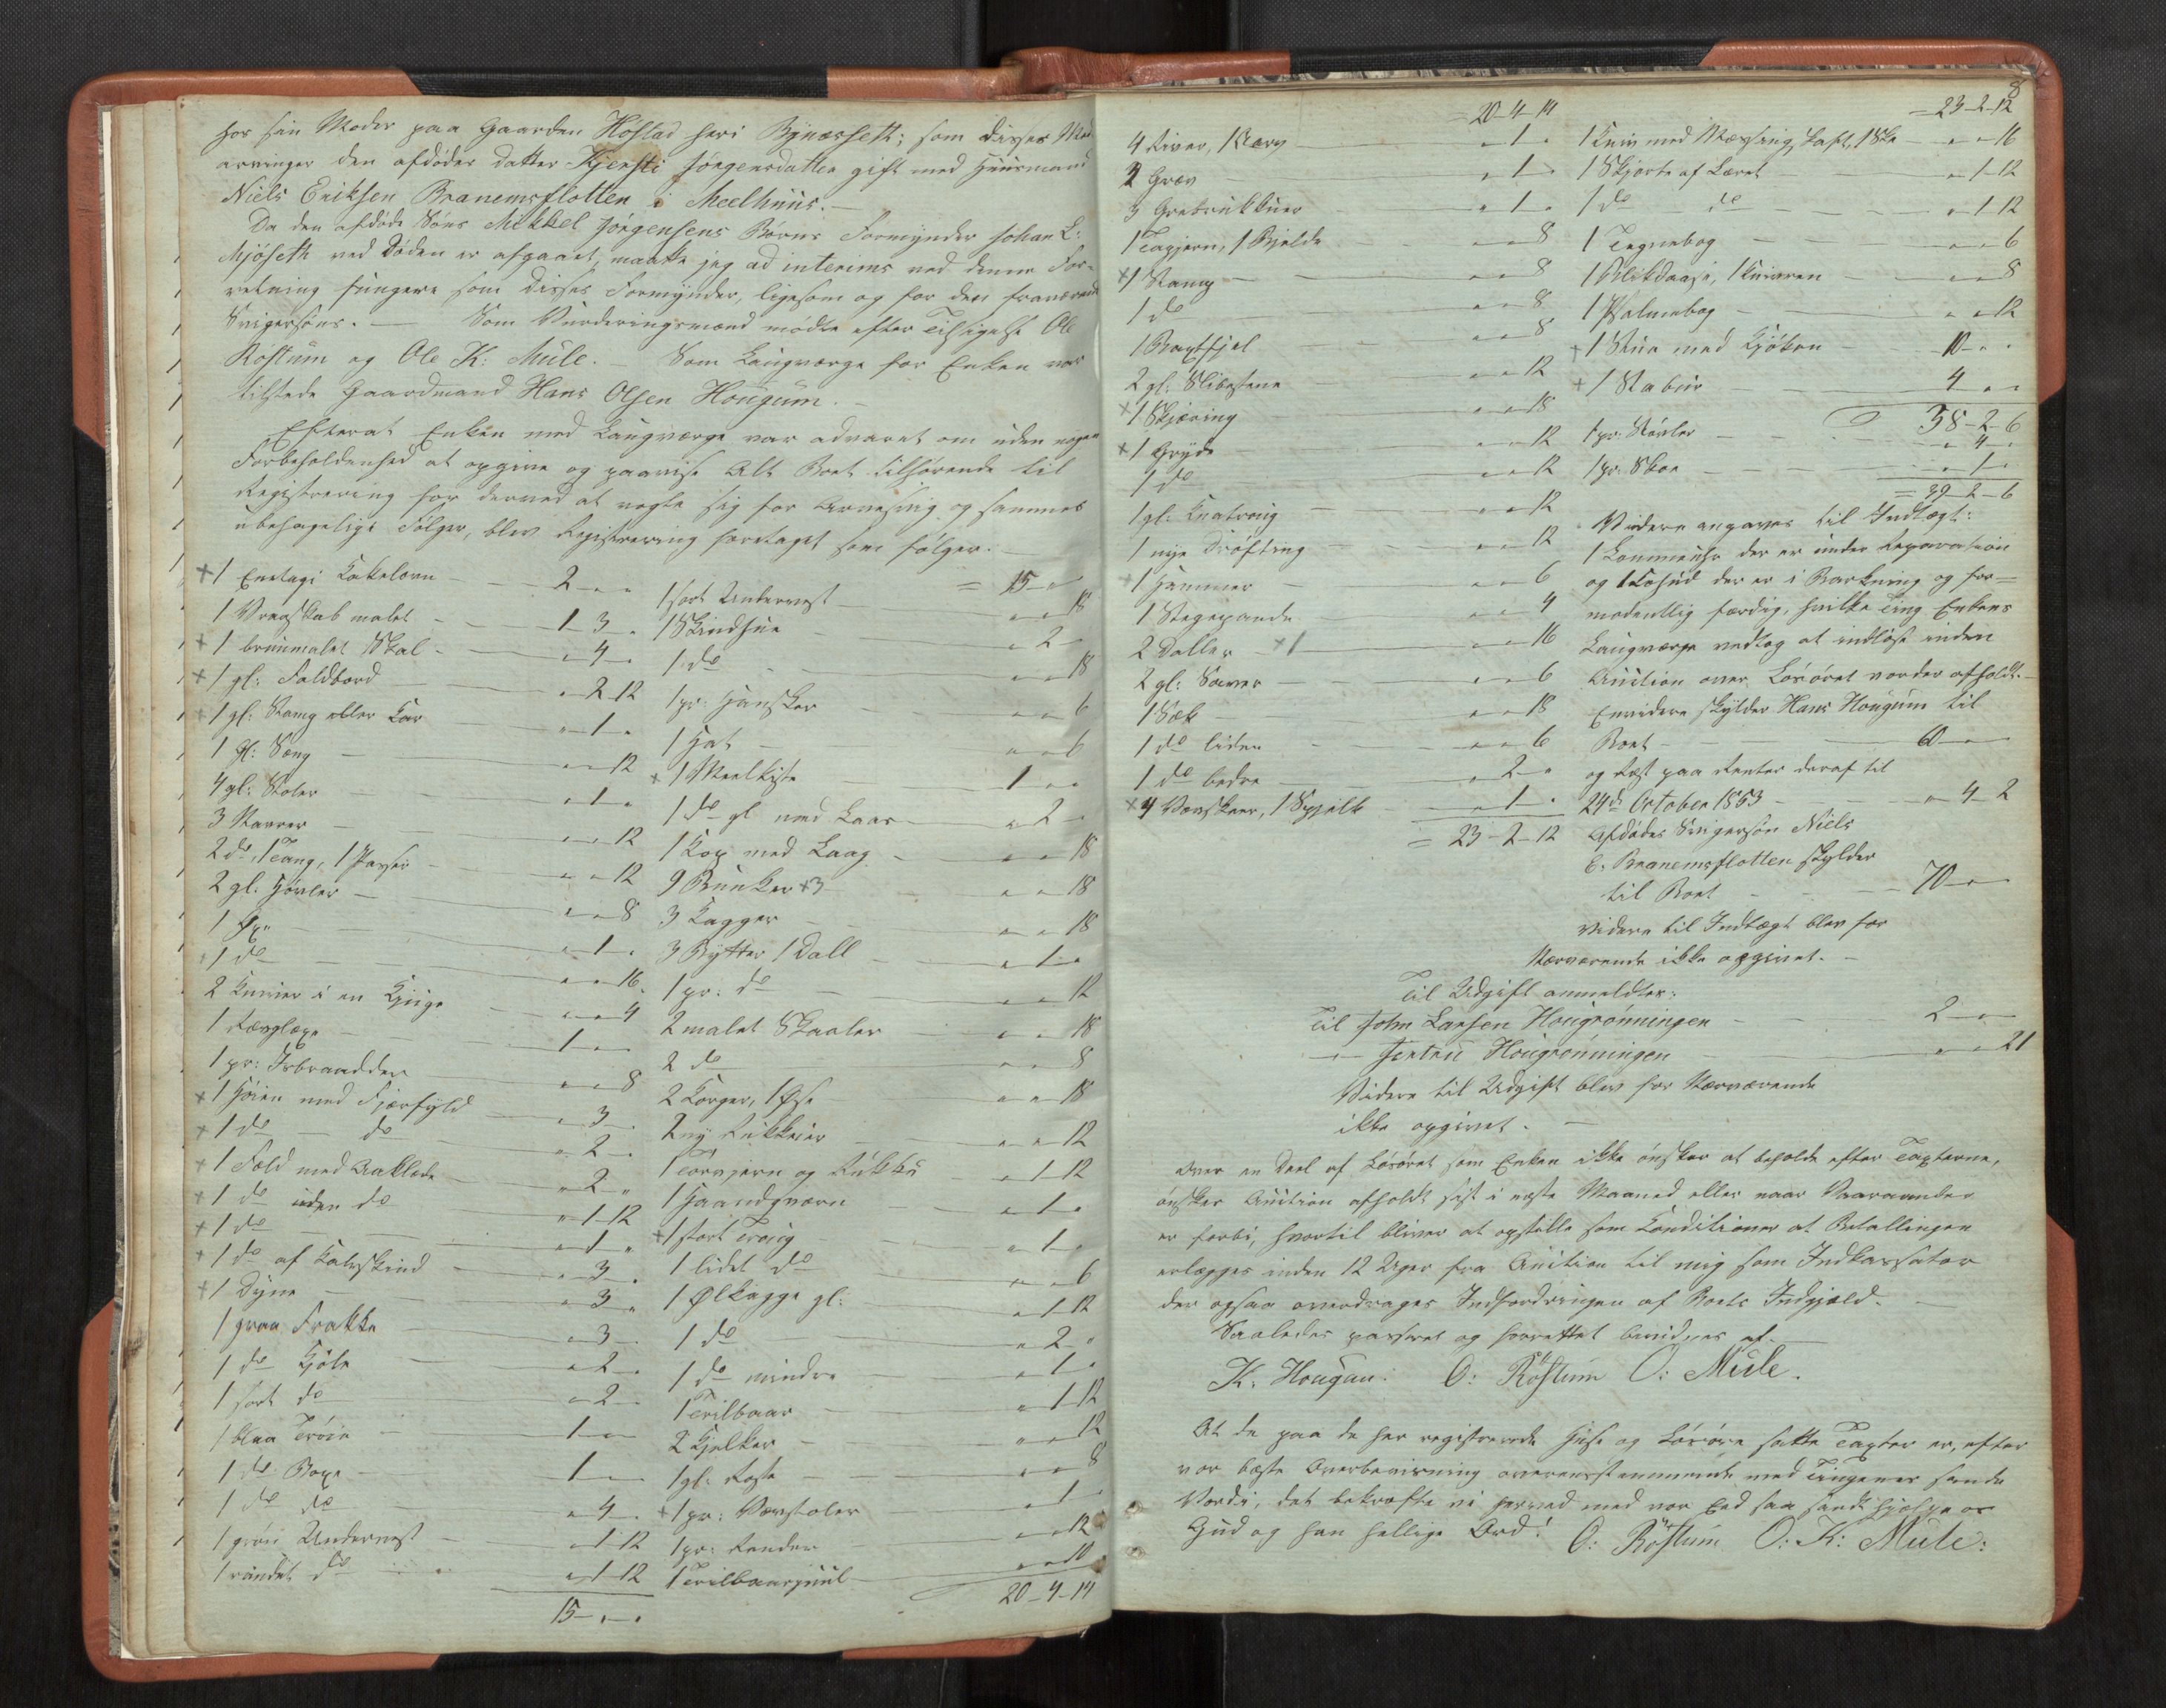 hos sin Moder paa Gaarden Höstad heri Bÿnæsseth; som disses Med
arvinger den afdödes datter Kjersti Jörgensdatter gift med Huusmand
Niels Eriksen Branemsflotten i Meelhuus.
Da den afdöde Söns Mikkel Jörgensens Börns Formynder Johan L:
Mjöseth ved Döden er afgaaet, maatte jeg ad interims ved denne For-
retning fungere som disses Formynder, ligesom og for den fraværende
Svigersöns. — Som Vurderingsmænd mödte efter Tilsigelse Ole
Röstum og Ole K: Mule. — Som Laugværge for Enken var
tilstede Gaardmand Hans Olsen Hougum. —
Efterat Enken med Laugværge var advaret om uden nogen
Forbeholdenhed at opgive og paavise Alt Boet tilhörende til
Registrering for derved at vogte sig for Arvesvig og sammes
ubehagelige Fölger, blev Registrering foretaget som fölger. —
+ 1 Enetagi Kakelovn - 2 " "
1 Vragskab malet - 1 3 "
+ 1 bruunmalet Skal - " 4 "
+ 1 gl: Foldbord " 2 12
+ 1 gl: Stamp eller Kar " 1 "
1 gl: Seng " " 12
4 gl: Stoler " 1 "
3 Navrer " " 12
2 do, 1 Tang, 1 Passer " " 12
2 gl. Hövler " " 8
1 Öx " 1 "
1 do " " 16
2 Knive i en Kjuge " " 4
1 1 " "
1 pr: " " 8
+ 1 Höien med Fjærfyld " 3 "
+ 1 do do " 2 "
+ 1 Fæld med Aaklæde " 2 "
+ 1 do uden do " 1 12
+ 1 do " 1 "
+ 1 do af Kalvskind " 3 "
+ 1 Dyne " 3 "
1 graa Frakke " 3 "
1 do Kjole " 2 "
1 sort do " 2 "
1 blaa Tröie 1 " "
1 do Boxe 1 " "
1 do do " 4 "
1 grön Undervest " 1 12
1 randet do " 1 12
15 " "
= 15 " "
1 sort Undervest " " 18
1 Skindhue " 2 "
1 do " " 18
1 pr: Handsker " " 6
1 Hat " " 6
+ 1 Meelkiste 1 " "
1 do gl med Laas " 2 "
1 Kop med Laag " " 18
9 Bunker + 3 " " 18
3 Kagger " " 18
3 Bytter 1 Dall " 1 "
1 pr: do " " 12
2 malet Skaaler " " 18
2 do " " 8
2 Korger, 1 Öse " " 18
2 ny " " 12
1 Torvjern og " 1 12
1 Haandqværn " 1 "
+ 1 stort Traug " 1 "
1 lidet do " " 6
1 Ölkagge gl: " 1 12
1 do " 2 "
1 do mindre " 1 "
1 Trilbaar " 1 12
2 Kjelker " " 12
1 gl: " " 8
+ 1 pr: Vævstoler " 1 "
1 pr: Render " " 12
1 Trilbaarhjuul " " 10
20 - 4 - 14
8
= 20 - 4 - 14
4 River, 1 " 1 "
2 Græv " 1 "
3 " 1 "
1 Tagjern, 1 Bjelde " " 8
+ 1 Stamp " " 8
1 do " " 8
1 " " 8
2 gl: Slibestene " " 12
+ 1 Skjæring " " 18
+ 1 Gryde " " 12
1 do " " 12
1 gl: Knatroug " " 12
1 nye Dröfting " " 12
+ 1 Hammer " " 6
1 Stegepande " " 4
2 Daller + 1 " " 16
2 gl: Sauer " " 6
1 Sæk " " 18
1 do liden " " 6
1 do bedre " 2 "
+ 4 Vævskeer, 1 " 1 "
= 23 - 2 - 12
= 23 - 2 - 12
1 Kniv med Messing Skaft, 1 Ske " " 16
1 Skjorte af Læret " 1 12
1 do do " 1 12
1 Tegnebog " " 6
1 Blikdaase, 1 " " 8
1 Psalmebog " " 12
+ 1 Stue med Kjöken 10 " "
+ 1 Stabur 4 " "
38 - 2 - 6
1 pr: Stövler " 4 "
1 pr: Skoe " 1 "
= 39 - 2 - 6
Videre angaves til Indtægt:
1 Lommeuhr der er under Reparation
og 1 Kohud der er i Barkning og for=
modentlig færdig, hvilke Ting Enkens
Laugværge vedtog at indlöse inden
Auction over Lösöret vorder afholdt. —
Envidere skylder Hans Hougum til
Boet 60 " "
og Rest paa Renter deraf til
24de October 1853 " 4 2
Afdödes Svigersön Niels
E. Branemsflotten skylder
til Boet 70 " "
Videre til Indtægt blev for
Nærværende ikke opgivet. —
Til Udgift anmeldtes:
Til John Larsen Hougrönningen 2 " "
— Jertru Hougrönningen " " 21
Videre til Udgift blev for Nærværende
ikke opgivet. —
Over en Deel af Lösöret som Enken ikke önsker at beholde efter Taxterne,
önskes Auction afholdt sist i neste Maaned eller naar Vaaraander
er forbi, hvortil bliver at opstille som Conditioner at Betallingen
erlægges inden 12 Uger fra Auction til mig som Indkassator
der ogsaa overdrages Indfordringen af Boets Indgjæld. —
Saaledes passeret og forrettet bevidnes af.
K. Hougan. O: Röstum O: Mule.
At de paa de her registrerede Huse og Lösöre satte Taxter er, efter
vor bæste Overbeviisning overensstemmende med Tingenes sande
Værdi, det bekræfte vi herved med vor Eed saa sandt hjælpe os
Gud og han hellige Ord! O: Röstum O: K: Mule: